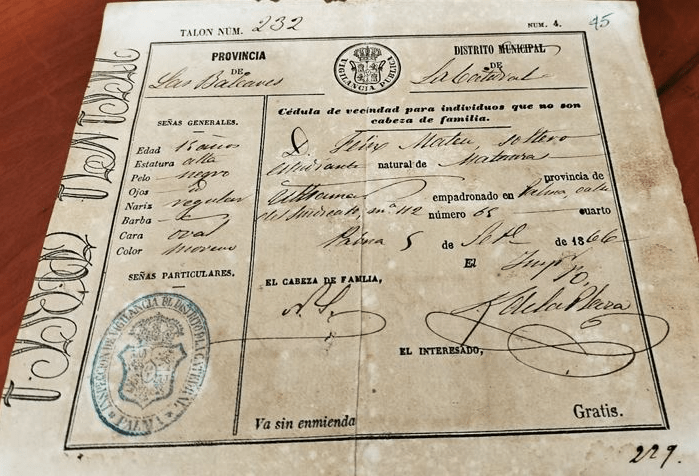 TALON NÚM. 232 NÚM. 4. 45
PROVINCIA
DE
Las Baleares
VIGILANCIA PUBLICA
DISTRITO MUNICIPAL
DE
La Catedral
Cédula de vecindad para individuos que no son
cabeza de familia.
SEÑAS GENERALES.
Edad 15 años
Estatura alta
Pelo negro
Ojos
Nariz regular
Barba
Cara oval
Color moreno
SEÑAS PARTICULARES.
D. Felix Mateu, soltero
Estudiante natural de
provincia de
Ultramar empadronado en Palma, calle
del Sindicato, mª 112 número 65 cuarto
Palma 5 de de 1866
El
EL CABEZA DE FAMLIA,
de la Plaza
EL INTERESADO,
INSPECCION DE VIGILANCIA DEL DISTRITO DE LA CATEDRAL
Va sin enmienda
Gratis.
229.